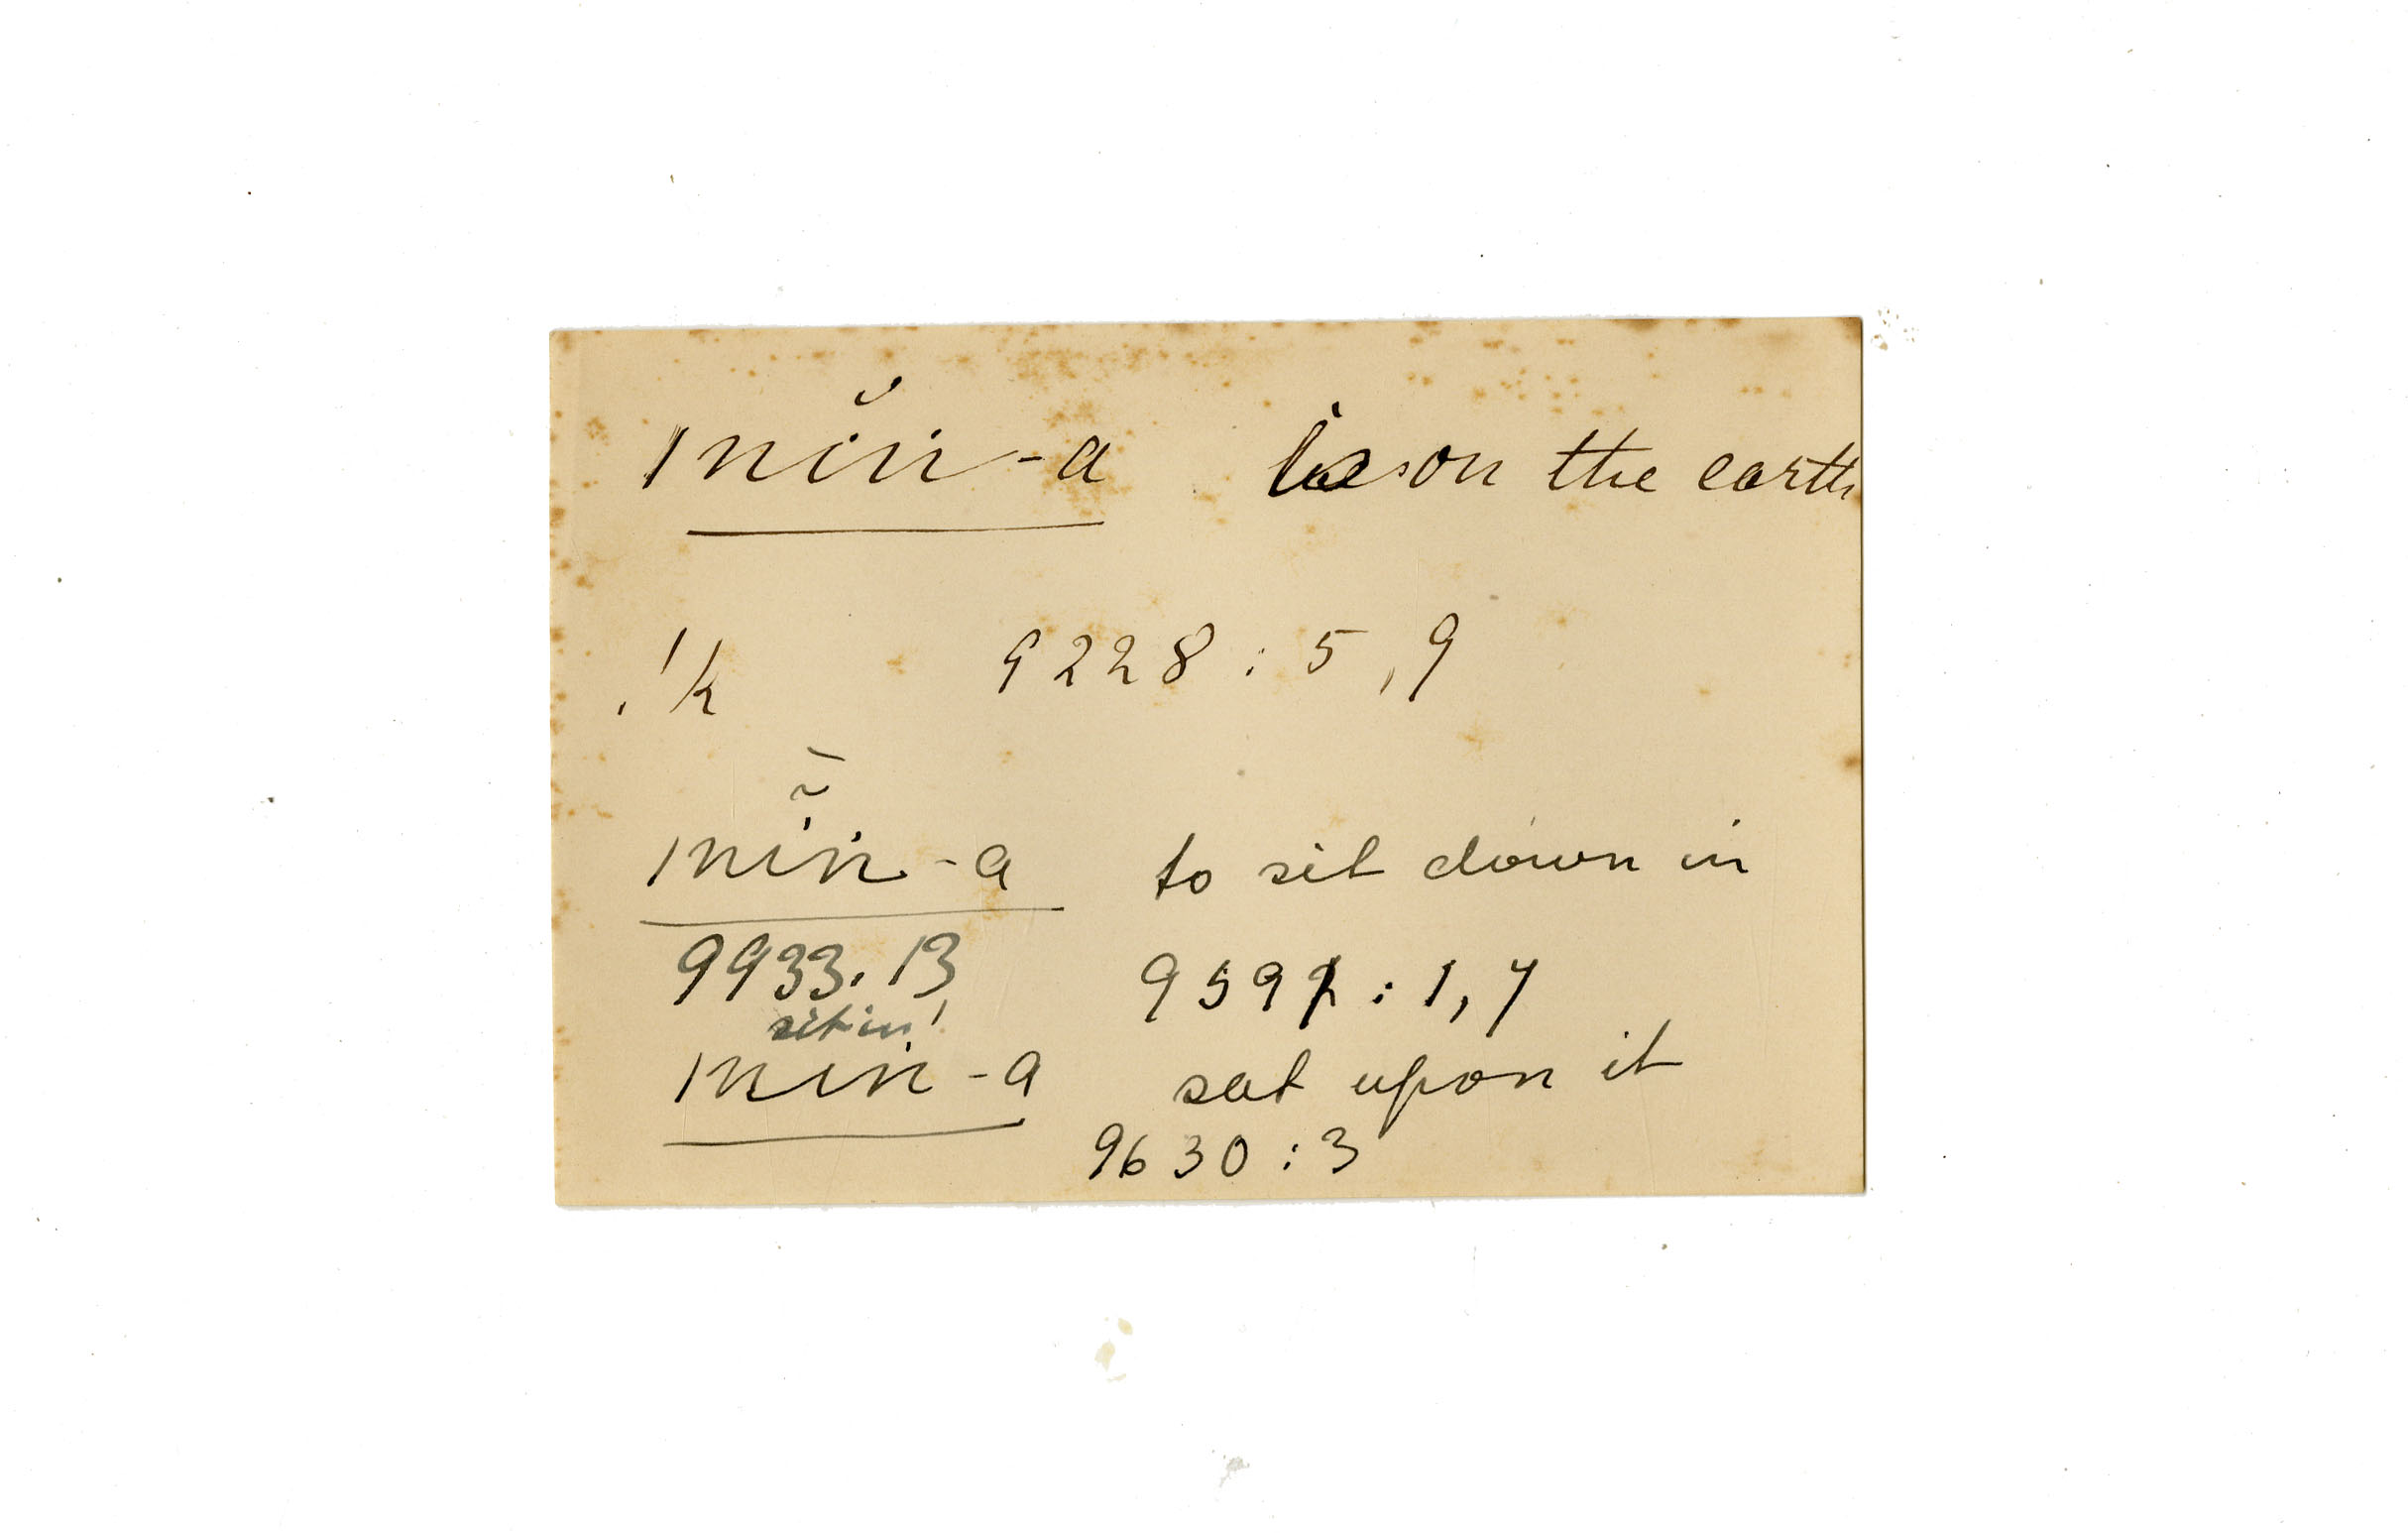 /nĭn-a lies on the earth
!k 9228:5,9
/nīn-a to sit down in
9933.13 9592:1,7
sit in!
/nin-a sat upon it
9630:3